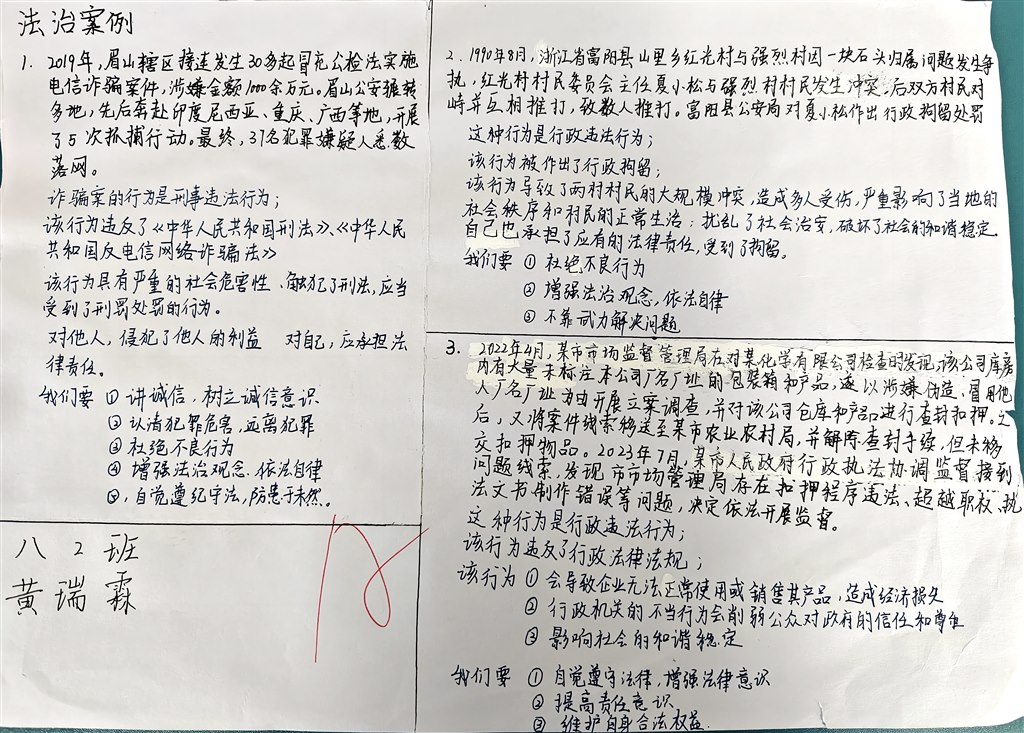 法治案例
1. 2019年,眉山辖区接连发生30多起冒充公检法实施
电信诈骗案件,涉嫌金额1000余万元。眉山公安辗转
多地,先后奔赴印度尼西亚、重庆、广西等地,开展
了5次抓捕行动。最终,37名犯罪嫌疑人悉数
落网。
诈骗案的行为是刑事违法行为;
该行为违反了《中华人民共和国刑法》、《中华人民
共和国反电信网络诈骗法》
该行为具有严重的社会危害性、触犯了刑法,应当
受到了刑罚处罚的行为。
对他人,侵犯了他人的利益 对自己,应承担法
律责任。
我们要 ① 讲诚信,树立诚信意识
② 认清犯罪危害,远离犯罪
③ 杜绝不良行为
④ 增强法治观念、依法自律
⑤ 自觉遵纪守法,防患于未然。
八 2 班
黄瑞霖
2. 1990年8月,浙江省富阳县山里乡红光村与强烈村因一块石头归属问题发生争
执,红光村村民委员会主任夏小松与强烈村村民发生冲突.后双方村民对
峙并互相推打,致数人推打。富阳县公安局对夏小松作出行政拘留处罚
这种行为是行政违法行为;
该行为被作出了行政拘留;
该行为导致了两村村民的大规模冲突,造成多人受伤,严重影响了当地的
社会秩序和村民的正常生活;扰乱了社会治安,破坏了社会的和谐稳定.
自己也承担了应有的法律责任,受到了拘留。
我们要 ① 杜绝不良行为
② 增强法治观念,依法自律
③ 不靠武力解决问题
3. 2022年4月,某市市场监督管理局在对某化学有限公司检查时发现,该公司库房
内有大量未标注本公司厂名厂址的包装箱和产品,遂以涉嫌伪造、冒用他
人厂名厂址为由开展立案调查,并对该公司仓库和产品进行查封扣押。之
后,又将案件线索移送至某市农业农村局,并解除查封手续,但未移
交扣押物品。2023年7月,某市人民政府行政执法协调监督接到
问题线索,发现市市场管理局存在扣押程序违法、超越职权、执
法文书制作错误等问题,决定依法开展监督。
这种行为是行政违法行为;
该行为违反了行政法律法规;
该行为 ① 会导致企业无法正常使用或销售其产品,造成经济损失
② 行政机关的不当行为会削弱公众对政府的信任和尊重
③ 影响社会的和谐稳定
我们要 ① 自觉遵守法律,增强法律意识
② 提高责任意识
③ 维护自身合法权益.